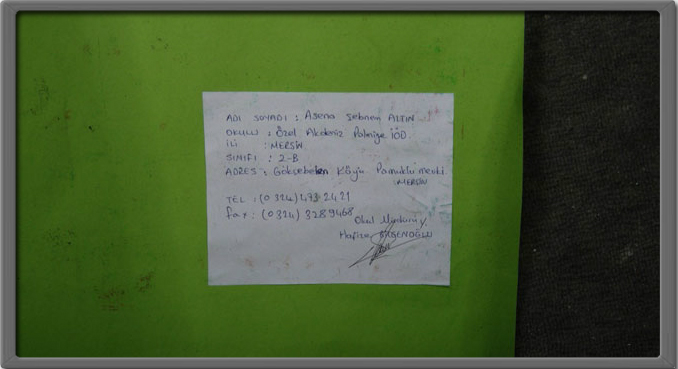 ADI SOYADI : Asena Şebnem ALTIN
OKULU : Özel Akdeniz Palmiye İÖO.
İLİ : MERSİN
SINIFI : 2-B
ADRES : Gökçebelen Köyü Pamuklu mevki
MERSİN
TEL : (0324) 473 2421
fax : (0324) 3289468
Okul Müdürü
Hafize